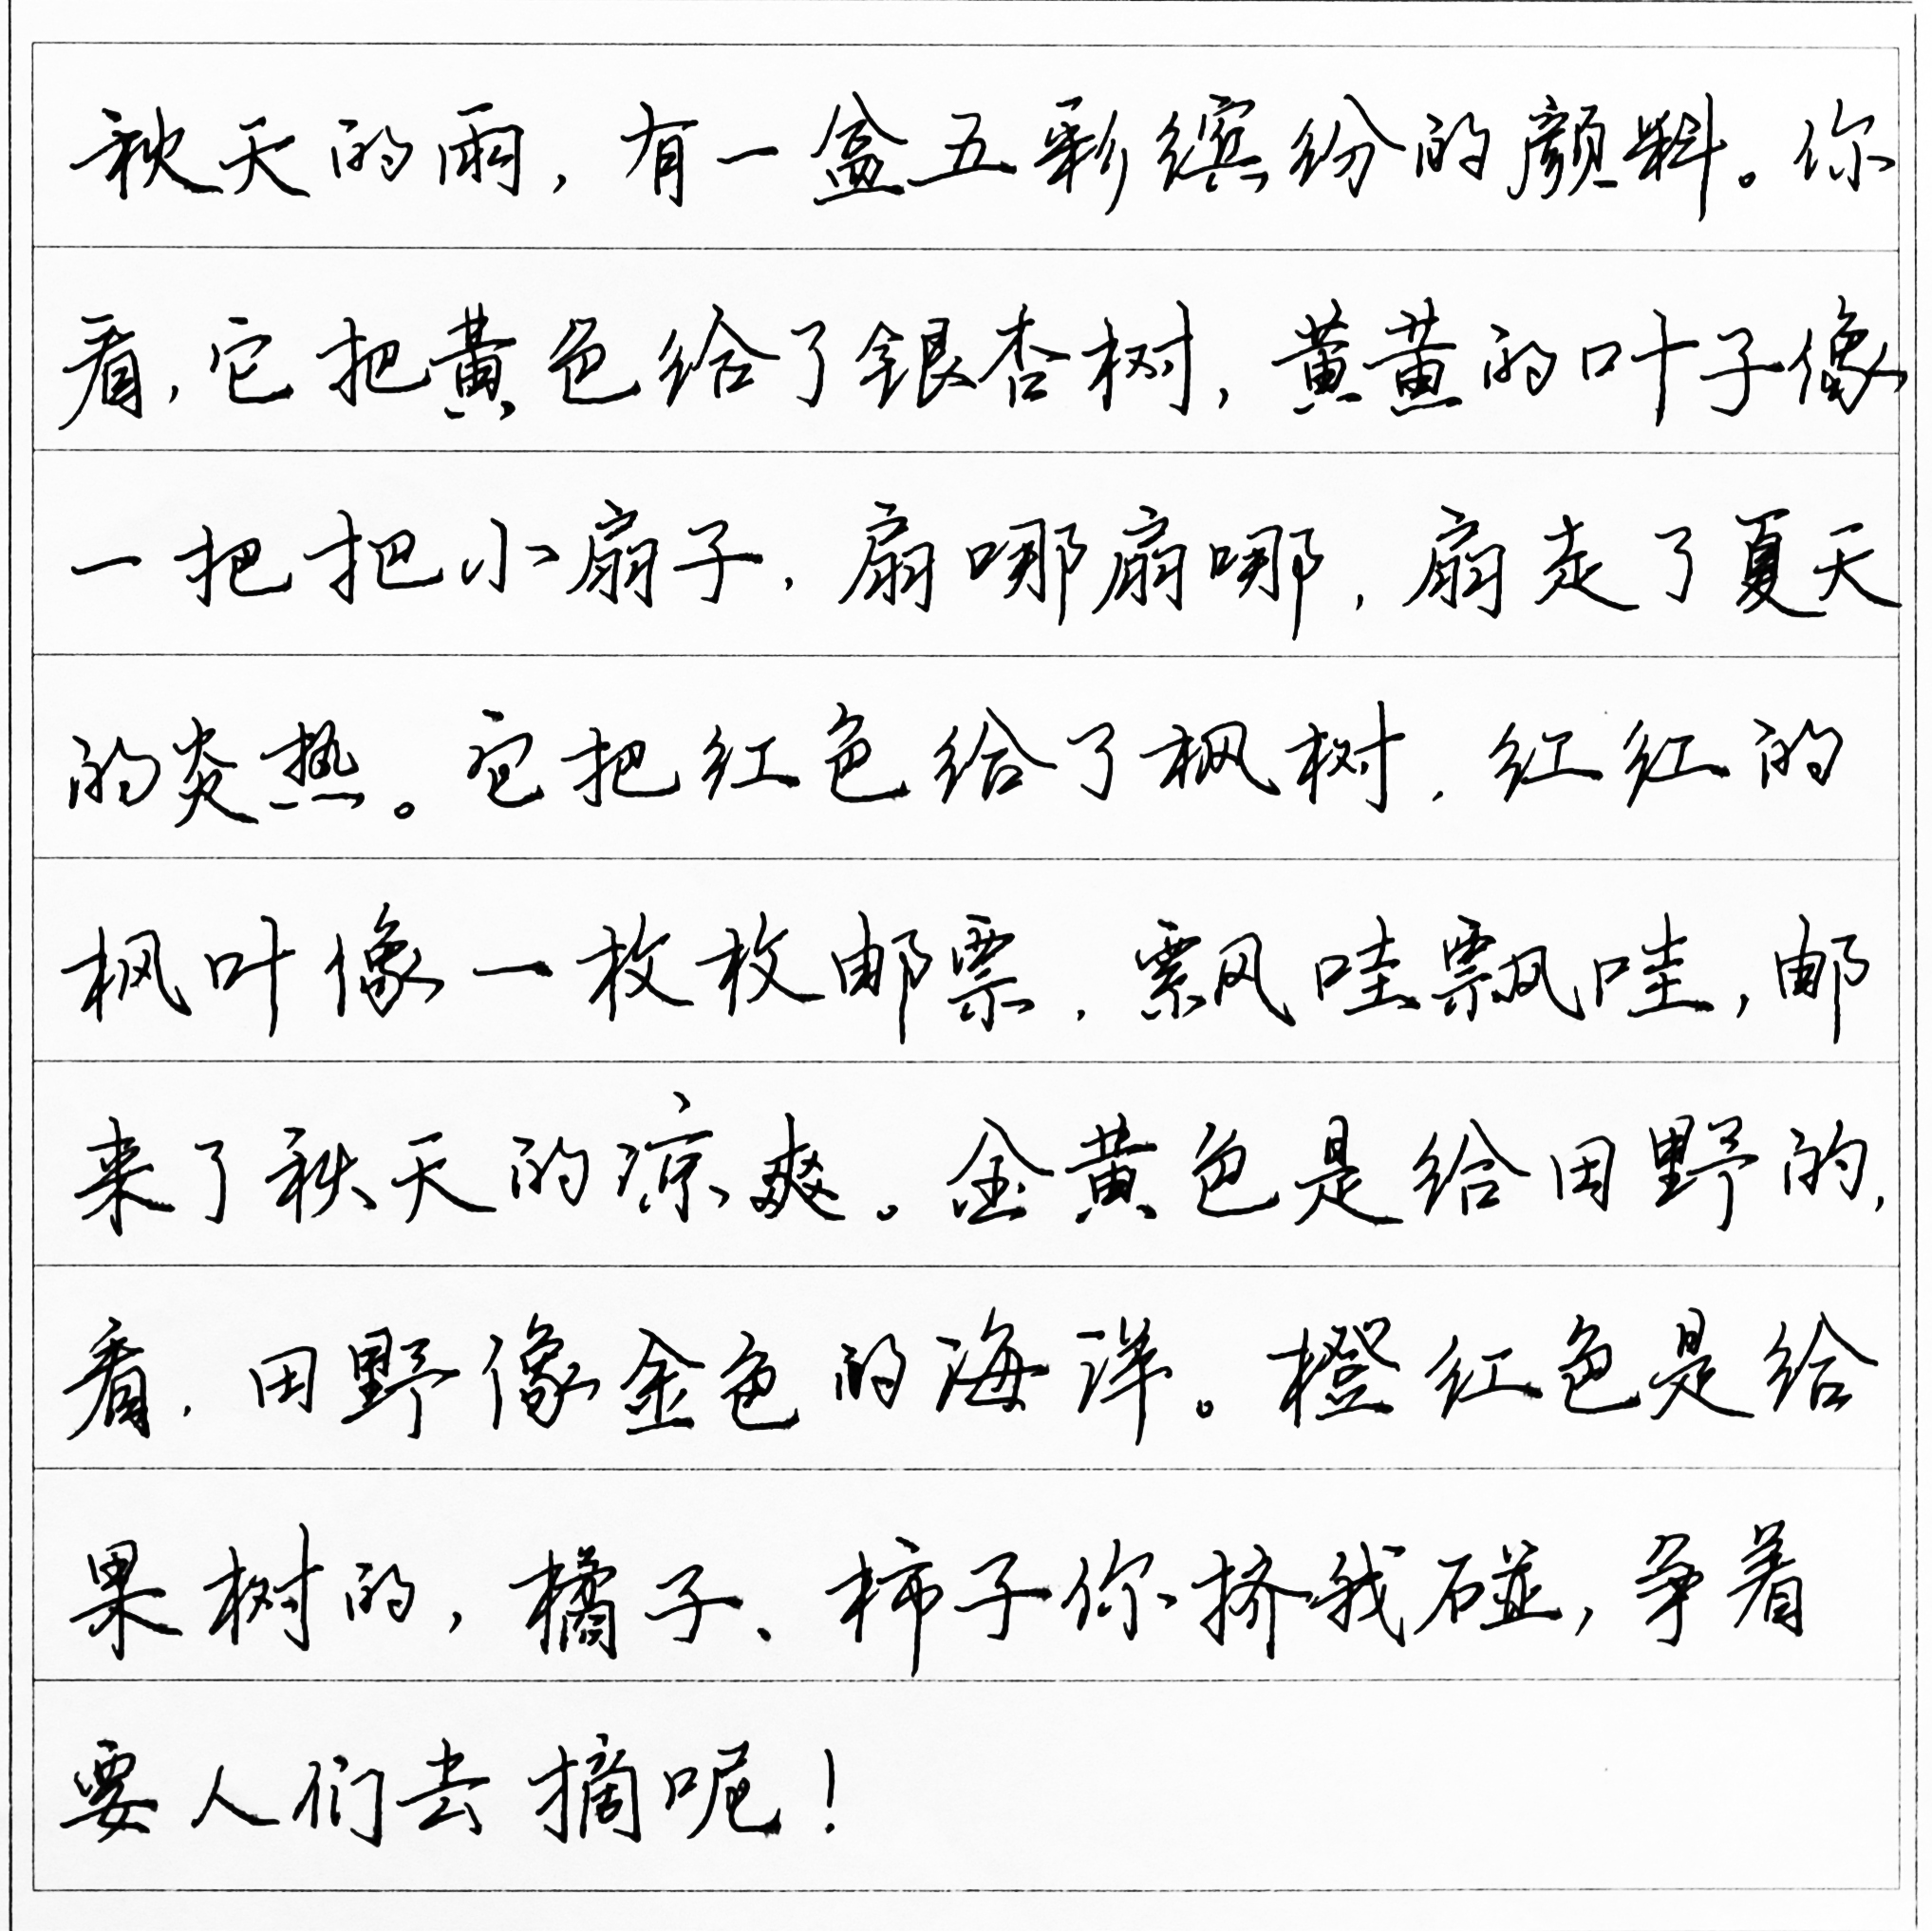 秋天的雨，有一盒五彩缤纷的颜料。你
看，它把黄色给了银杏树，黄黄的叶子像
一把把小扇子，扇哪扇哪，扇走了夏天
的炎热。它把红色给了枫树，红红的
枫叶像一枚枚邮票，飘哇飘哇，邮
来了秋天的凉爽。金黄色是给田野的，
看，田野像金色的海洋。橙红色是给
果树的，橘子、柿子你挤我碰，争着
要人们去摘呢！